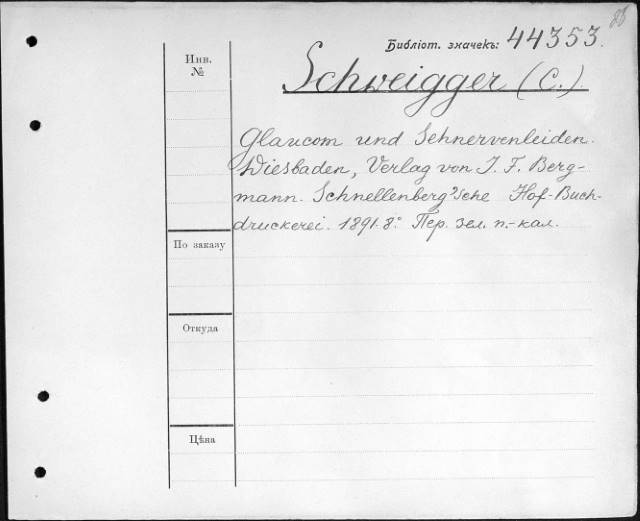 Библіот. значекъ: 44353.
Инв.
№
Schweigger (C.).
Glaucom und Sehnervenleiden.
Wiesbaden, Verlag von J. F. Berg-
mann. Schnellenberg'sche Hof-Buch-
druckerei. 1891. 8.° Пер. зел. п.-кал.
По заказу
Откуда
Цѣна